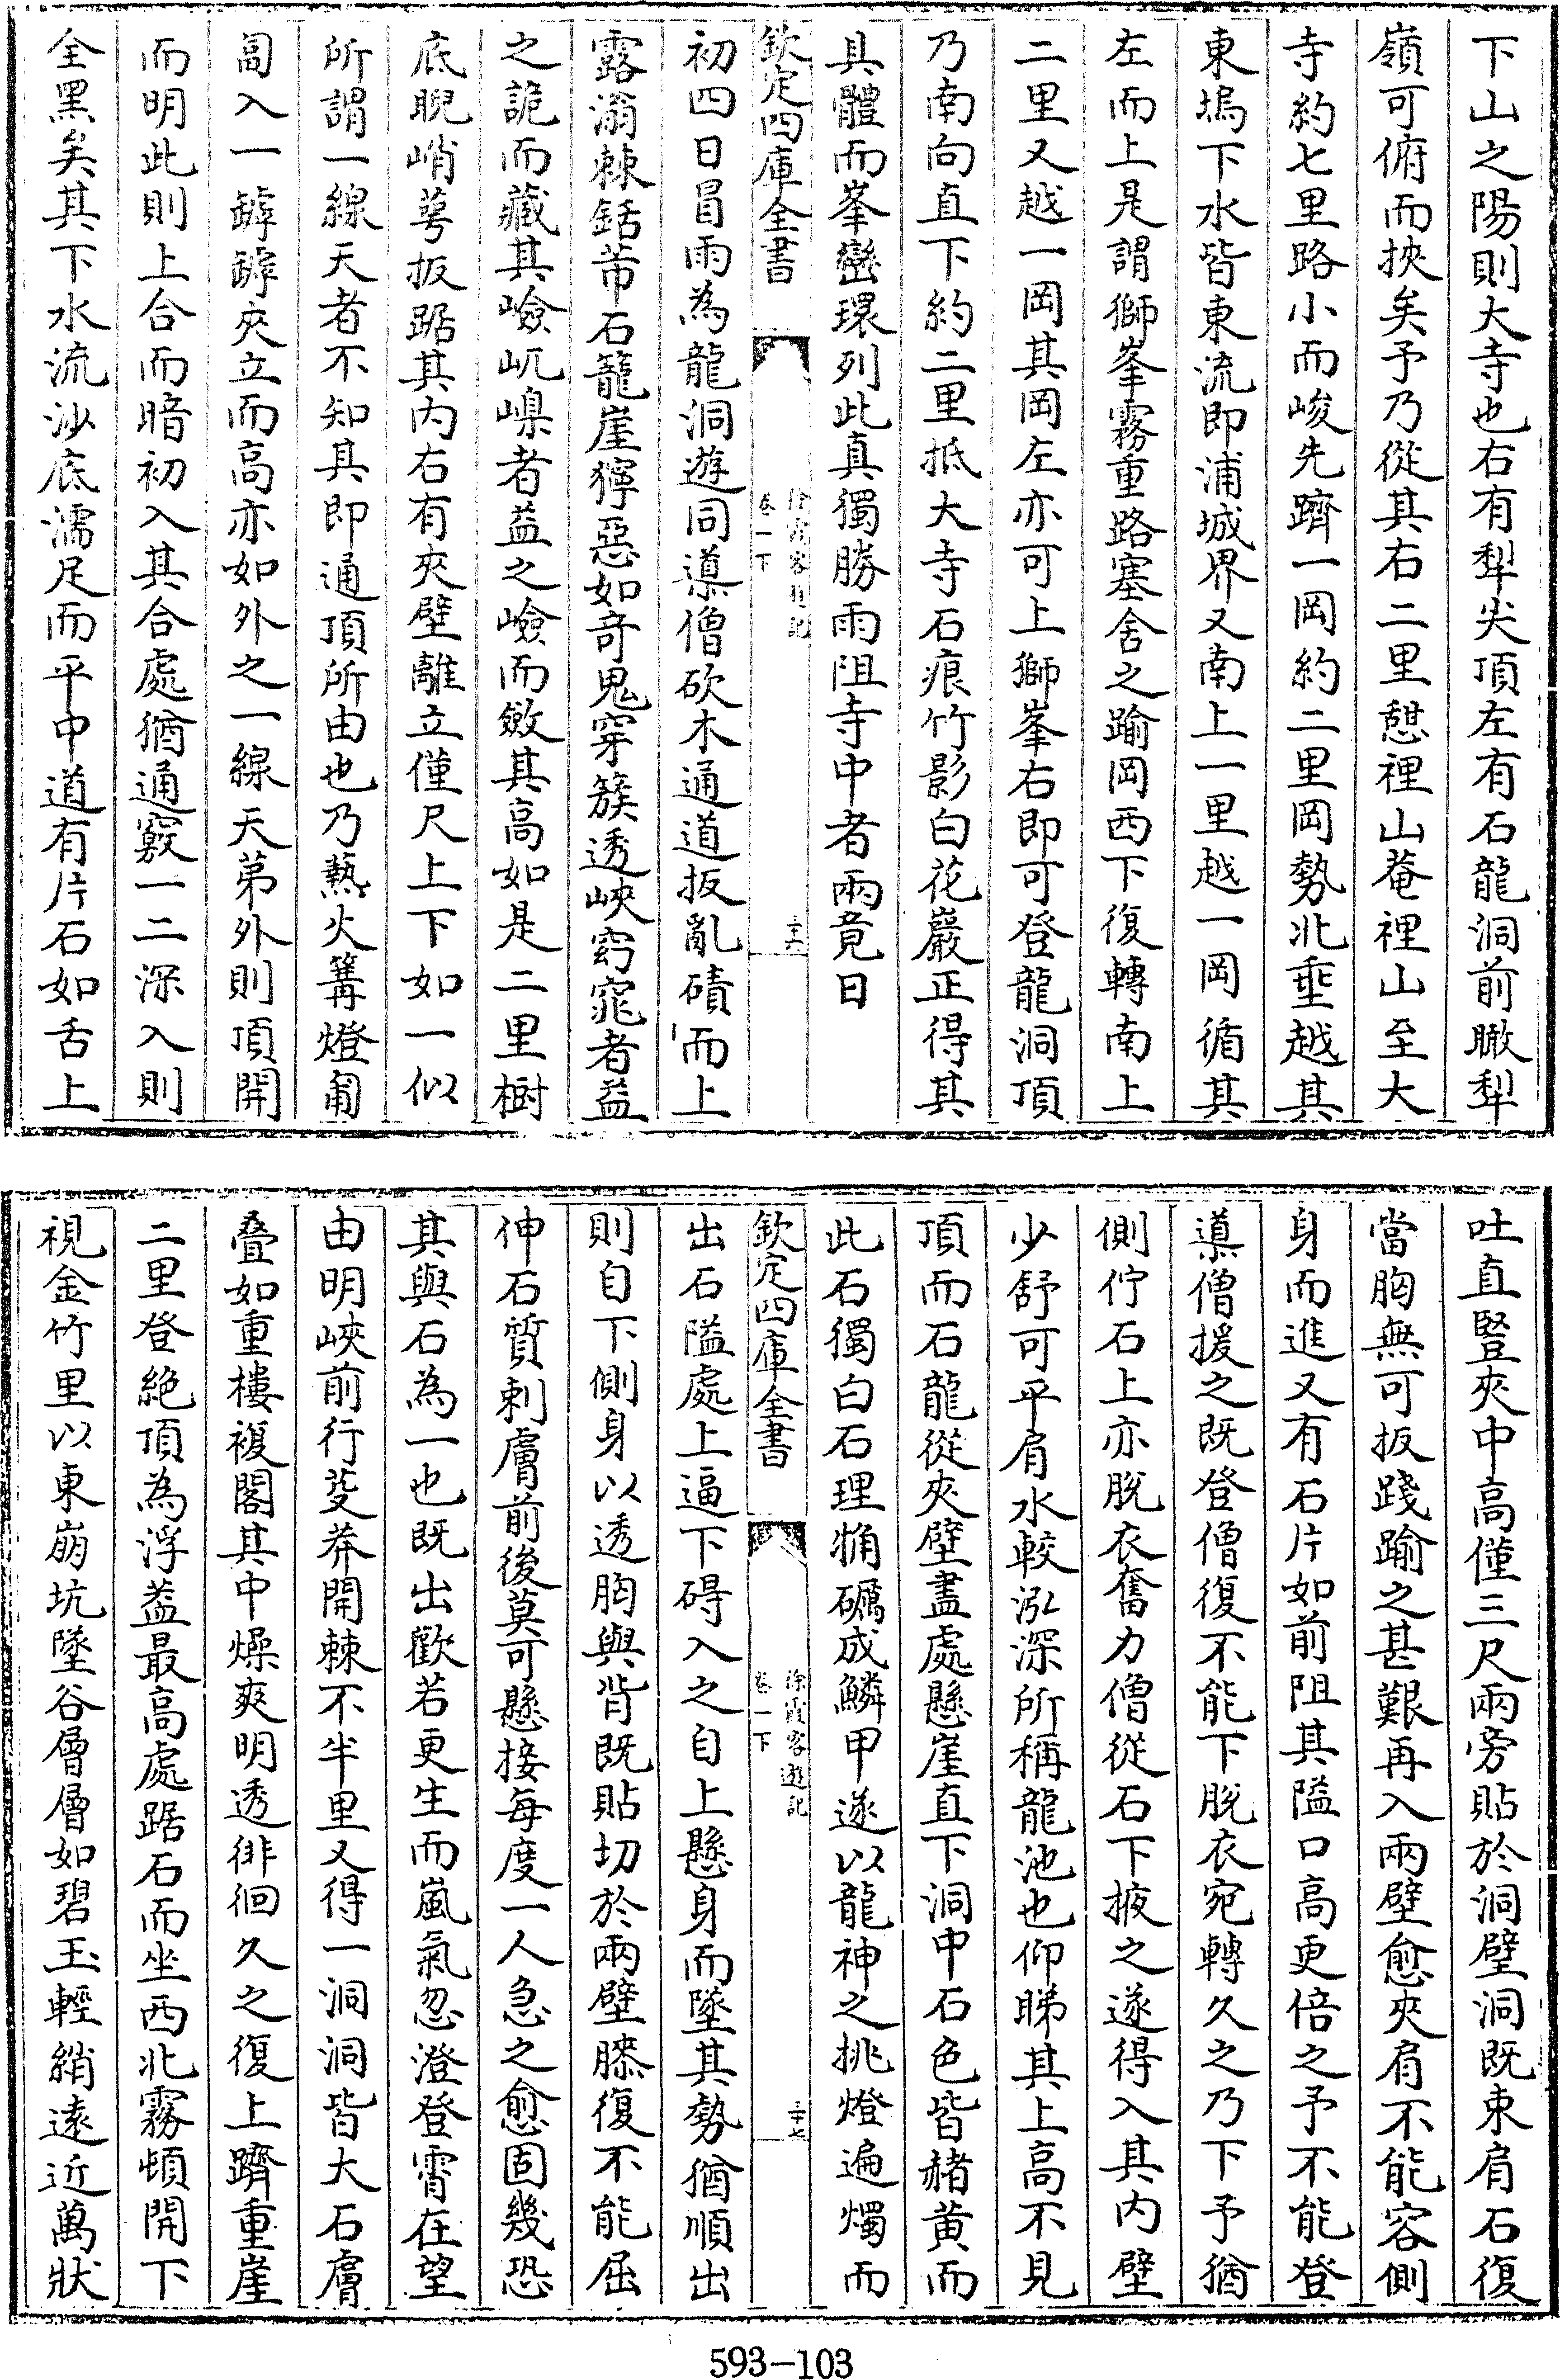 下山之陽則大寺也右有犁尖頂左有石龍洞前瞰犁
嶺可俯而挾矣予乃從其右二里憇裡山菴裡山至大
寺約七里路小而峻先躋一岡約二里岡勢北垂越其
東塢下水皆東流即浦城界又南上一里越一岡循其
左而上是謂獅峯霧重路塞舍之踰岡西下復轉南上
二里又越一岡其岡左亦可上獅峯右即可登龍洞頂
乃南向直下約二里抵大寺石痕竹影白花巖正得其
具體而峯巒環列此真獨勝雨阻寺中者兩竟日
欽定四庫全書
徐霞客遊記
卷一下
三十六
初四日冒雨為龍洞遊同導僧砍木通道扳亂磧而上
露滃棘銛芾石籠崖獰惡如奇鬼穿簇透峽窈窕者益
之詭而藏其嶮屼嵲者益之嶮而斂其高如是二里樹
底睨峭萼扳踞其內右有夾壁離立僅尺上下如一似
所謂一線天者不知其即通頂所由也乃爇火篝燈匍
匐入一罅罅夾立而高亦如外之一線天第外則頂開
而明此則上合而暗初入其合處猶通竅一二深入則
全黑矣其下水流沙底濡足而平中道有片石如舌上
吐直豎夾中高僅三尺兩旁貼於洞壁洞既束肩石復
當胸無可扳踐踰之甚艱再入兩壁愈夾肩不能容側
身而進又有石片如前阻其隘口高更倍之予不能登
導僧援之既登僧復不能下脫衣宛轉久之乃下予猶
側佇石上亦脫衣奮力僧從石下掖之遂得入其內壁
少舒可平肩水較泓深所稱龍池也仰睇其上高不見
頂而石龍從夾壁盡處懸崖直下洞中石色皆赭黃而
此石獨白石理觕礪成鱗甲遂以龍神之挑燈遍燭而
欽定四庫全書
徐霞客遊記
卷一下
三十七
出石隘處上逼下碍入之自上懸身而墜其勢猶順出
則自下側身以透胸與背既貼切於兩壁膝復不能屈
伸石質刺膚前後莫可懸接每度一人急之愈固幾恐
其與石為一也既出歡若更生而嵐氣忽澄登霄在望
由明峽前行芟莽開棘不半里又得一洞洞皆大石膚
叠如重樓複閣其中燥爽明透徘徊久之復上躋重崖
二里登絶頂為浮葢最高處踞石而坐西北霧頓開下
視金竹里以東崩坑墜谷層層如碧玉輕綃遠近萬狀
593-103